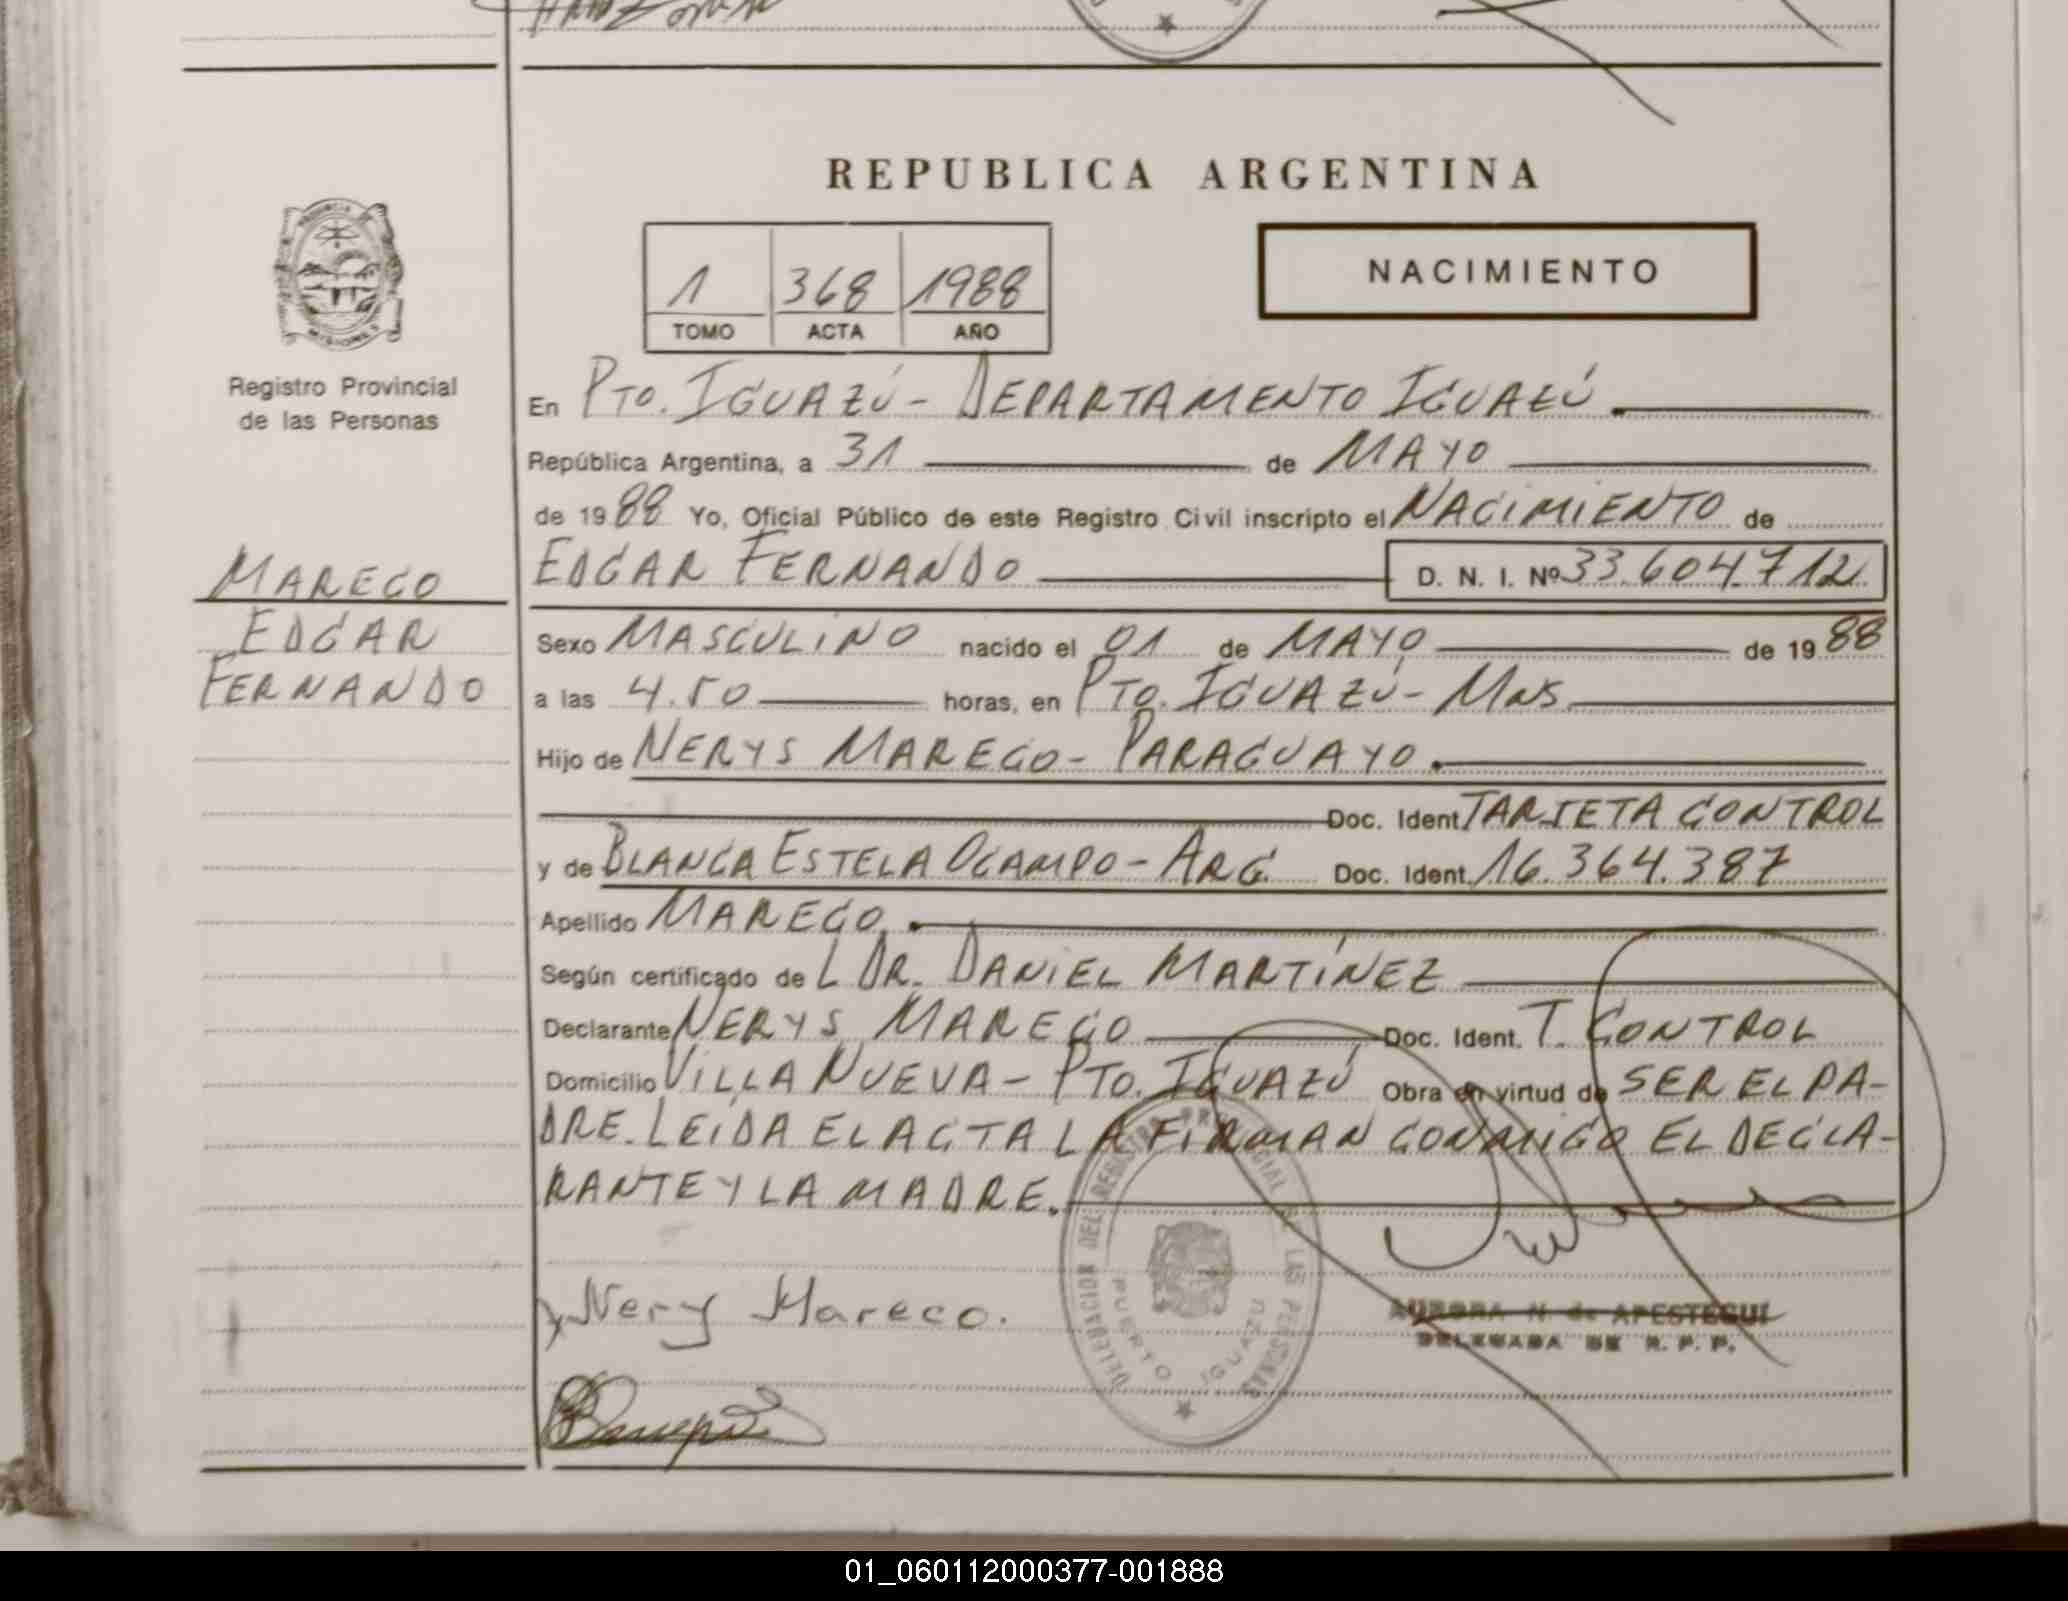 REPUBLICA ARGENTINA
NACIMIENTO
1 368 1988
TOMO ACTA AÑO
Registro Provincial
de las Personas
MARECO
EDGAR
FERNANDO
En PTO. IGUAZÚ - DEPARTAMENTO IGUAZÚ.
República Argentina, a 31 de MAYO
de 1988 Yo, Oficial Público de este Registro Civil inscripto el NACIMIENTO de
EDGAR FERNANDO D. N. I. Nº 33.604.712
Sexo MASCULINO nacido el 01 de MAYO de 1988
a las 4.50 horas, en PTO. IGUAZÚ - MNS.
Hijo de NERYS MARECO - PARAGUAYO.
Doc. Ident. TARJETA CONTROL
y de BLANCA ESTELA OCAMPO - ARG. Doc. Ident. 16.364.387
Apellido MARECO.
Según certificado de L DR. DANIEL MARTÍNEZ
Declarante NERYS MARECO Doc. Ident. T. CONTROL
Domicilio VILLA NUEVA - PTO. IGUAZÚ Obra en virtud de SER EL PA-
DRE. LEÍDA EL ACTA LA FIRMAN CONMIGO EL DECLA-
RANTE Y LA MADRE.
DELEGACION DEL REGISTRO PROVINCIAL DE LAS PERSONAS
PUERTO IGUAZU
Nery Mareco.
AURORA N. de APESTEGUI
DELEGADA DE R. P. P.
01_060112000377-001888